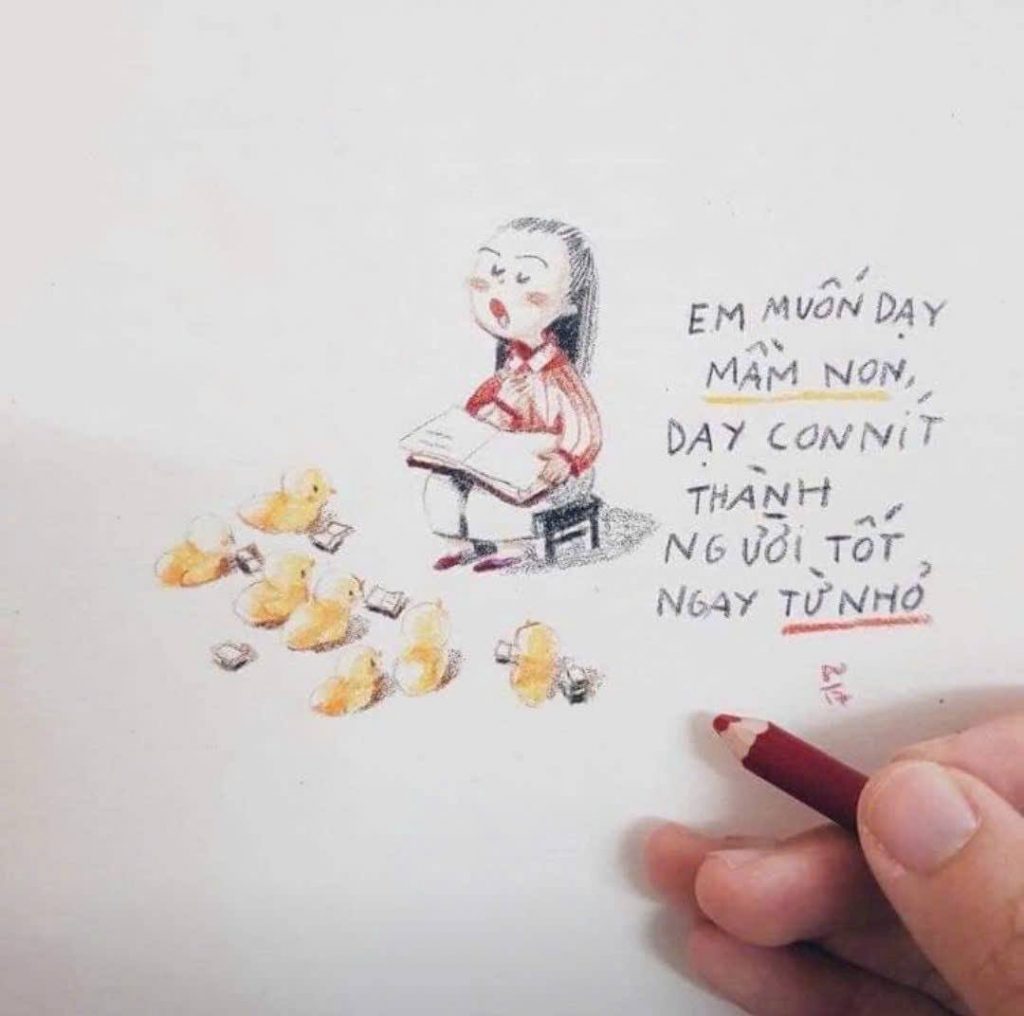 EM MUỐN DẠY
MẦM NON,
DẠY CON NÍT
THÀNH
NGƯỜI TỐT
NGAY TỪ NHỎ